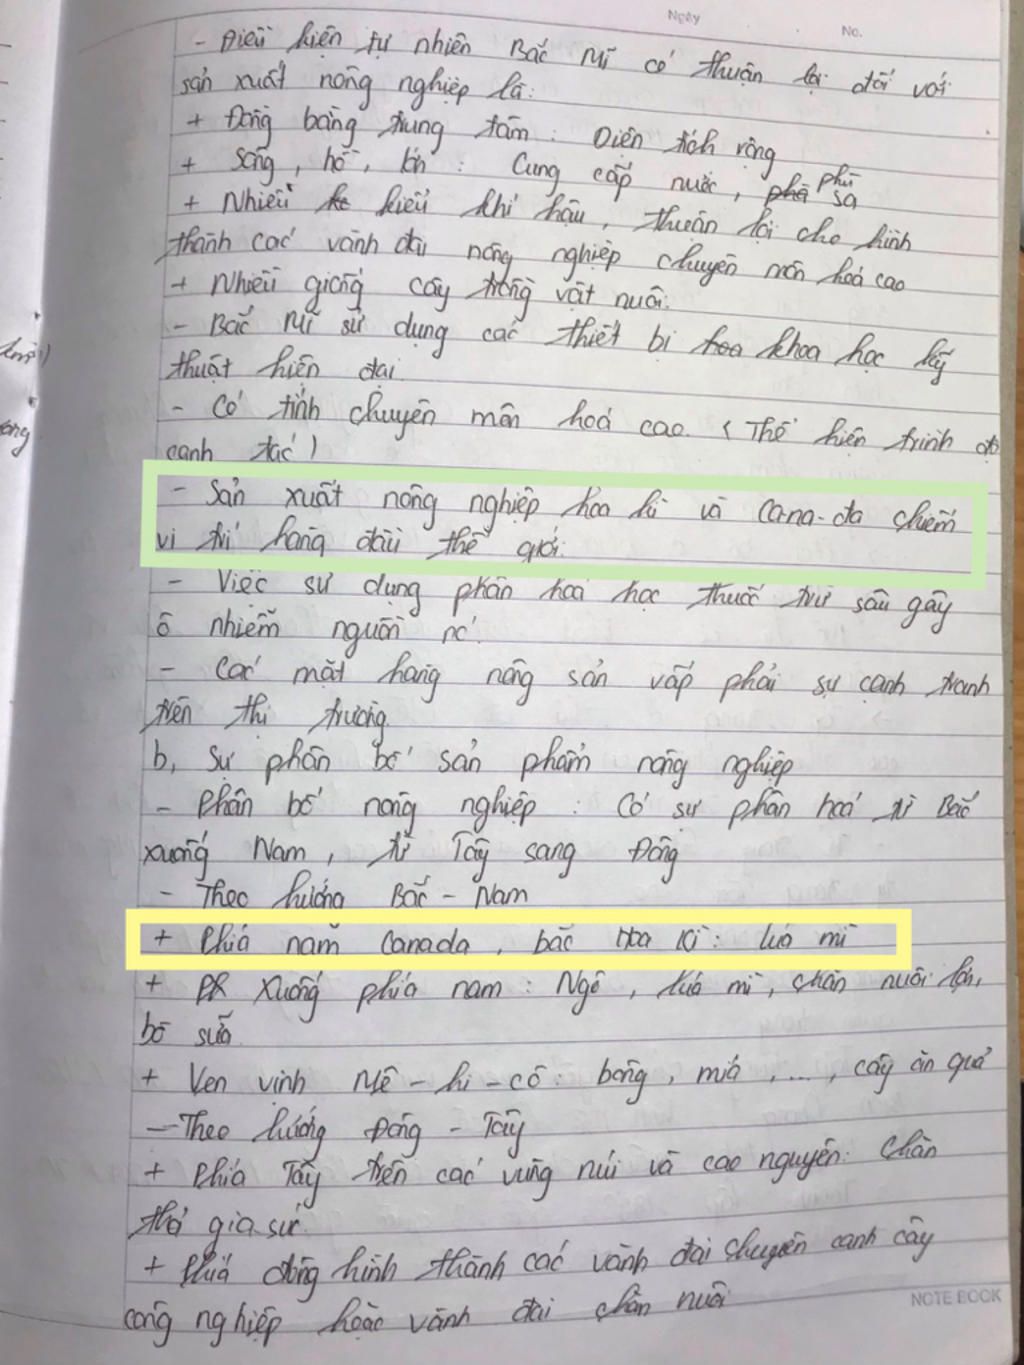 Ngày
No.
- Điều kiện tự nhiên Bắc Mĩ có thuận lợi đối với
sản xuất nông nghiệp là:
+ Đồng bằng trung tâm: Diện tích rộng
+ Sông, hồ, lớn: Cung cấp nước, phù sa
+ Nhiều kiểu khí hậu, thuận lợi cho hình
thành các vành đai nông nghiệp chuyên môn hoá cao
+ Nhiều giống cây trồng vật nuôi.
- Bắc Mĩ sử dụng các thiết bị khoa học kỹ
thuật hiện đại
- Có tính chuyên môn hoá cao (Thể hiện trình độ
canh tác)
- Sản xuất nông nghiệp hoa kì và Ca-na-đa chiếm
vị trí hàng đầu thế giới.
- Việc sử dụng phân hoá học thuốc trừ sâu gây
ô nhiễm nguồn nc.
- Các mặt hàng nông sản vấp phải sự cạnh tranh
trên thị trường
b, Sự phân bố sản phẩm nông nghiệp
- Phân bố nông nghiệp: Có sự phân hoá từ Bắc
xuống Nam, từ Tây sang Đông
- Theo hướng Bắc - Nam
+ Phía nam Canada, bắc Hoa Kì: lúa mì
+ Xuống phía nam: Ngô, lúa mì, chăn nuôi lợn,
bò sữa
+ Ven vịnh Mê-hi-cô: bông, mía, ..., cây ăn quả
- Theo hướng Đông - Tây
+ Phía Tây trên các vùng núi và cao nguyên: Chăn
thả gia súc.
+ Phía đông hình thành các vành đai chuyên canh cây
công nghiệp hoặc vành đai chăn nuôi
NOTE BOOK